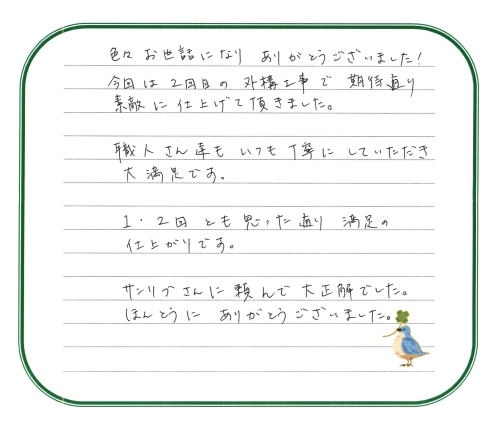 色々 お世話になり ありがとうございました!
今回は 2回目の 外構工事で 期待直り
素敵に 仕上げて頂きました。
職人さん達も いつも 丁寧に していただき
大満足です。
1・2回 とも 思った直り 満足の
仕上がりです。
サンリブさんに 頼んで 大正解でした。
ほんとうに ありがとうございました。